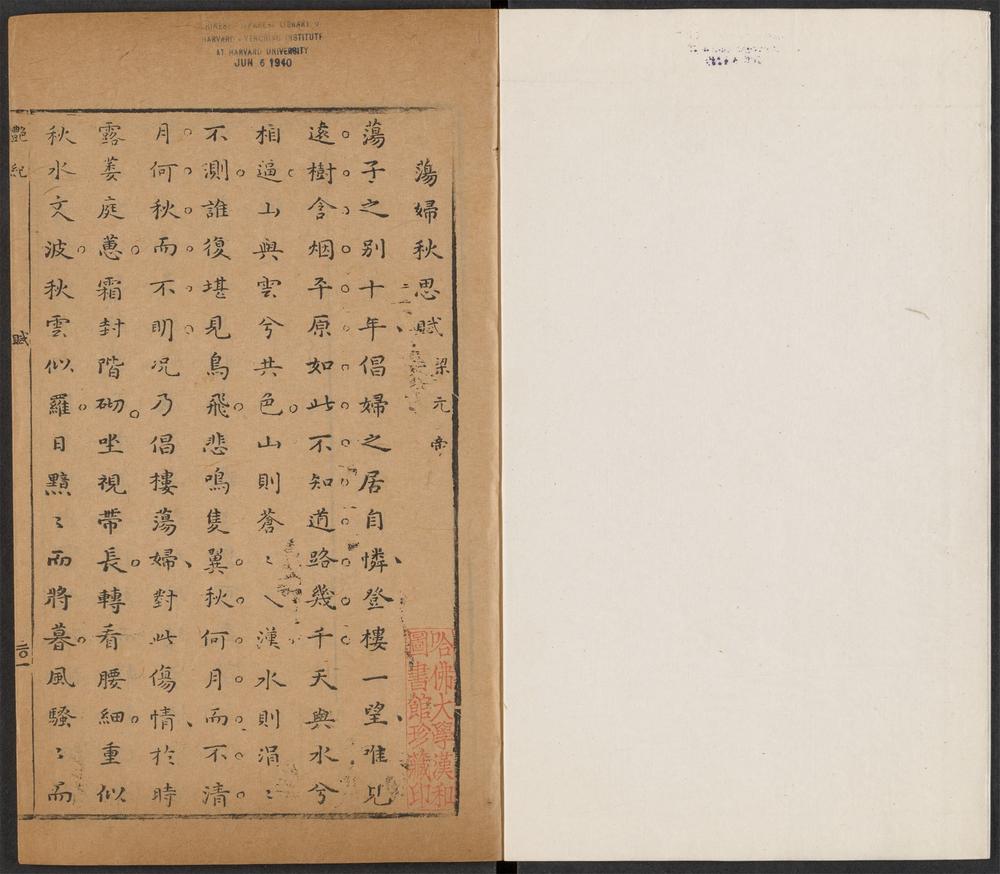 HARVARD-YENCHING INSTITUTE
AT HARVARD UNIVERSITY
JUN 6 1940
蕩婦秋思賦 梁元帝
蕩子之别十年倡婦之居自憐登樓一望唯見
遠樹含烟平原如此不知道路幾千天與水兮
相逼山與雲兮共色山則蒼〻入漢水則涓〻
不測誰復堪見鳥飛悲鳴隻翼秋何月而不清
月何秋而不明况乃倡樓蕩婦對此傷情於時
露萎庭蕙霜封階砌坐視帶長轉看腰細重似
秋水文波秋雲似羅日黯〻而將暮風騷〻而
艶紀
賦
二〇一
哈佛大學漢和
圖書館珍藏印